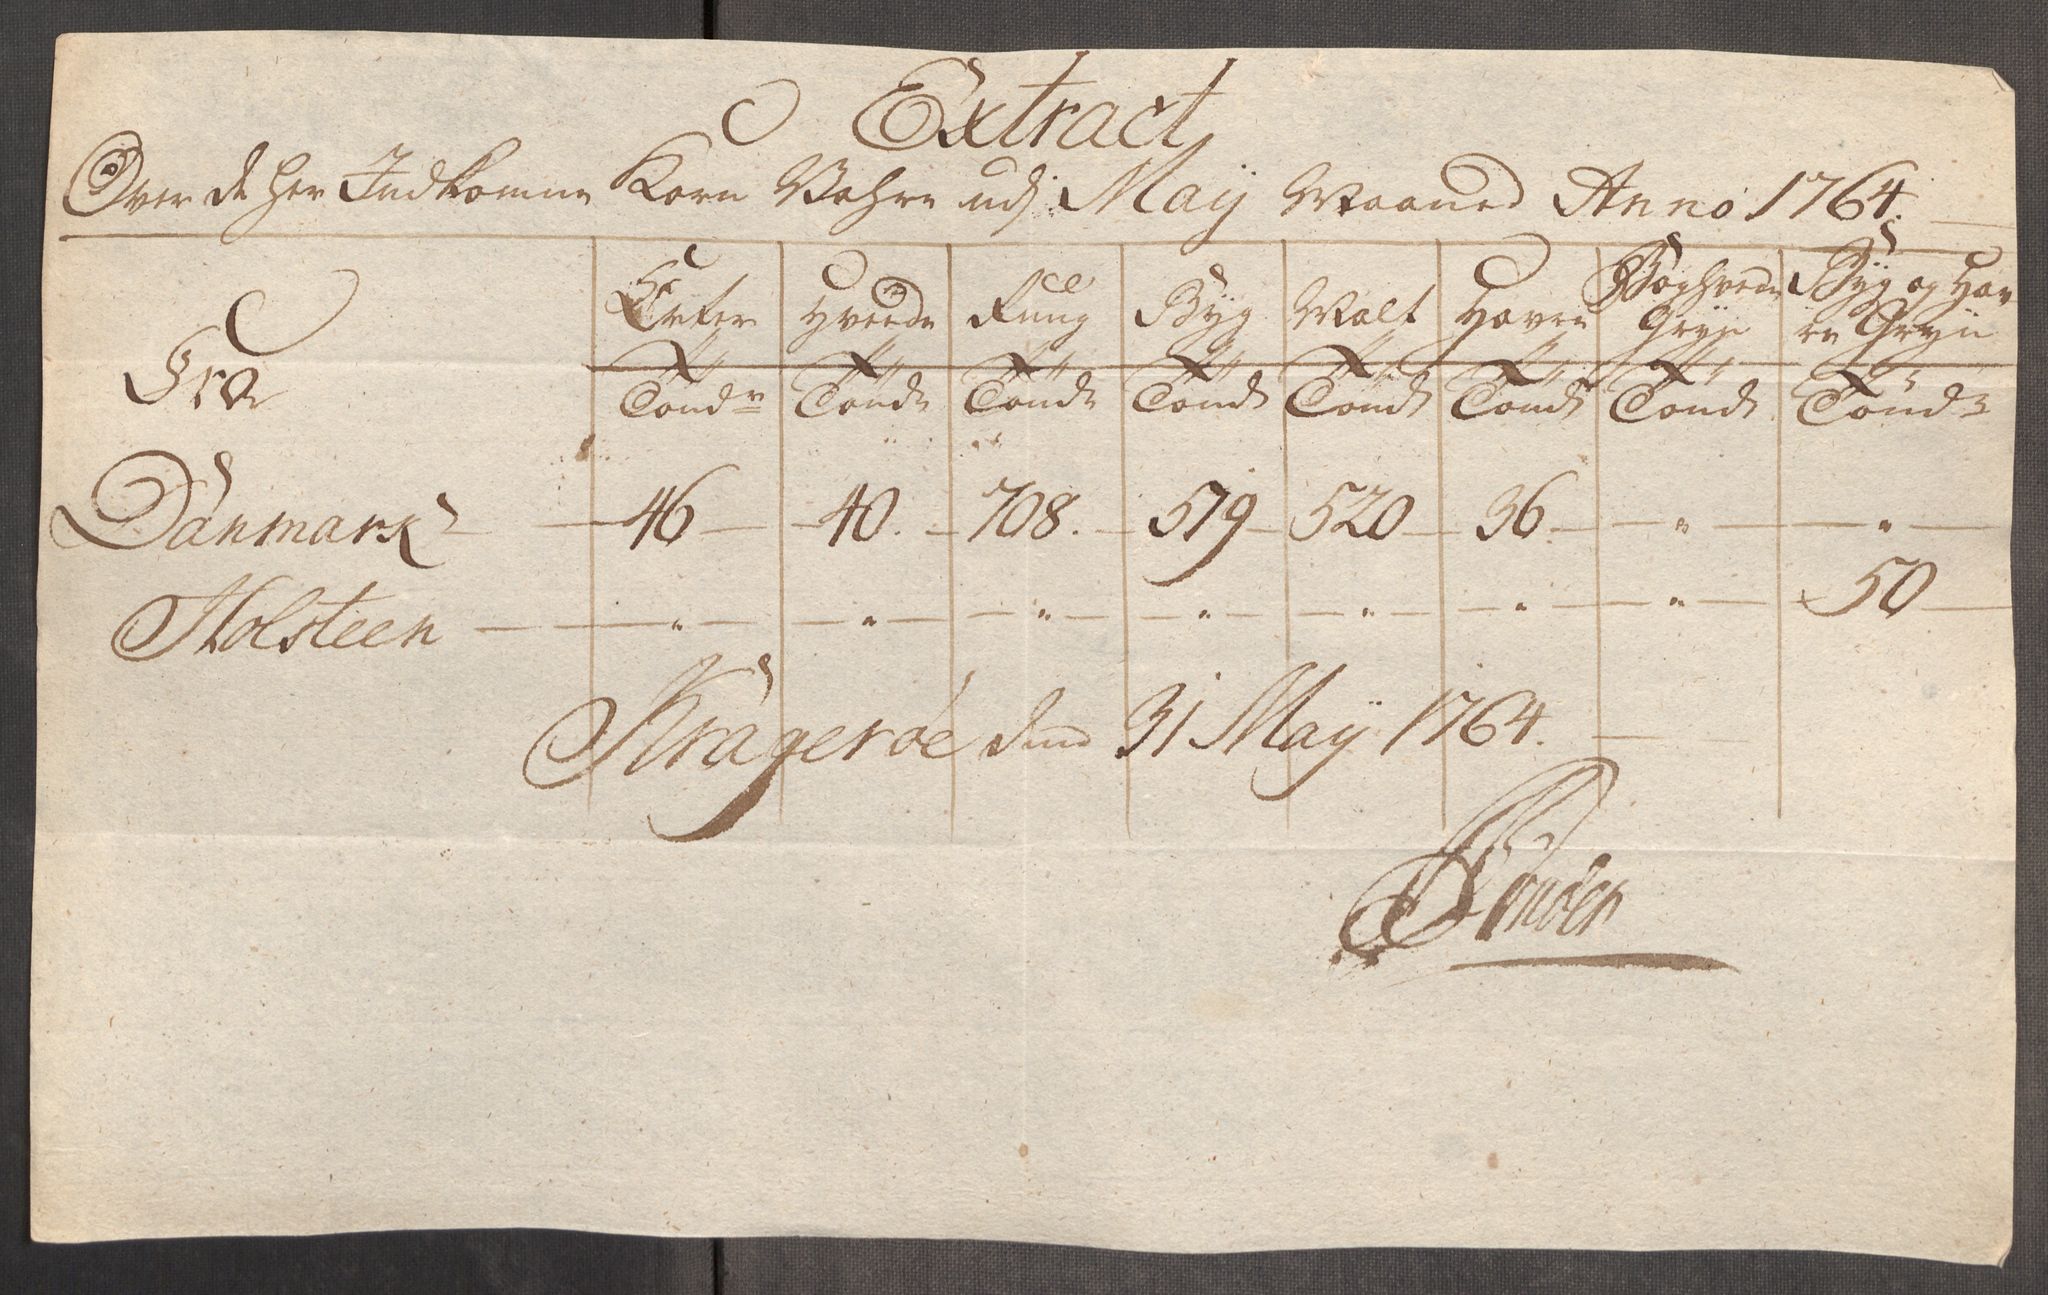 Extract
Over de her Indkomne Korn Vahre udj May Maaned Anno 1764.
Fra | Erter | Hvede | Rug | Byg | Malt | Havre | Boghvede Gryn | Byg og Havre Gryn
Tønder | Tønde | Tønde | Tønde | Tønde | Tønde | Tønde | Tønde
Danmark — 46 — 40. — 708. — 579 — 520 — 36. — " — "
Holsteen — " — " — " — " — " — " — " — 50
Kragerøe dend 31 May 1764.